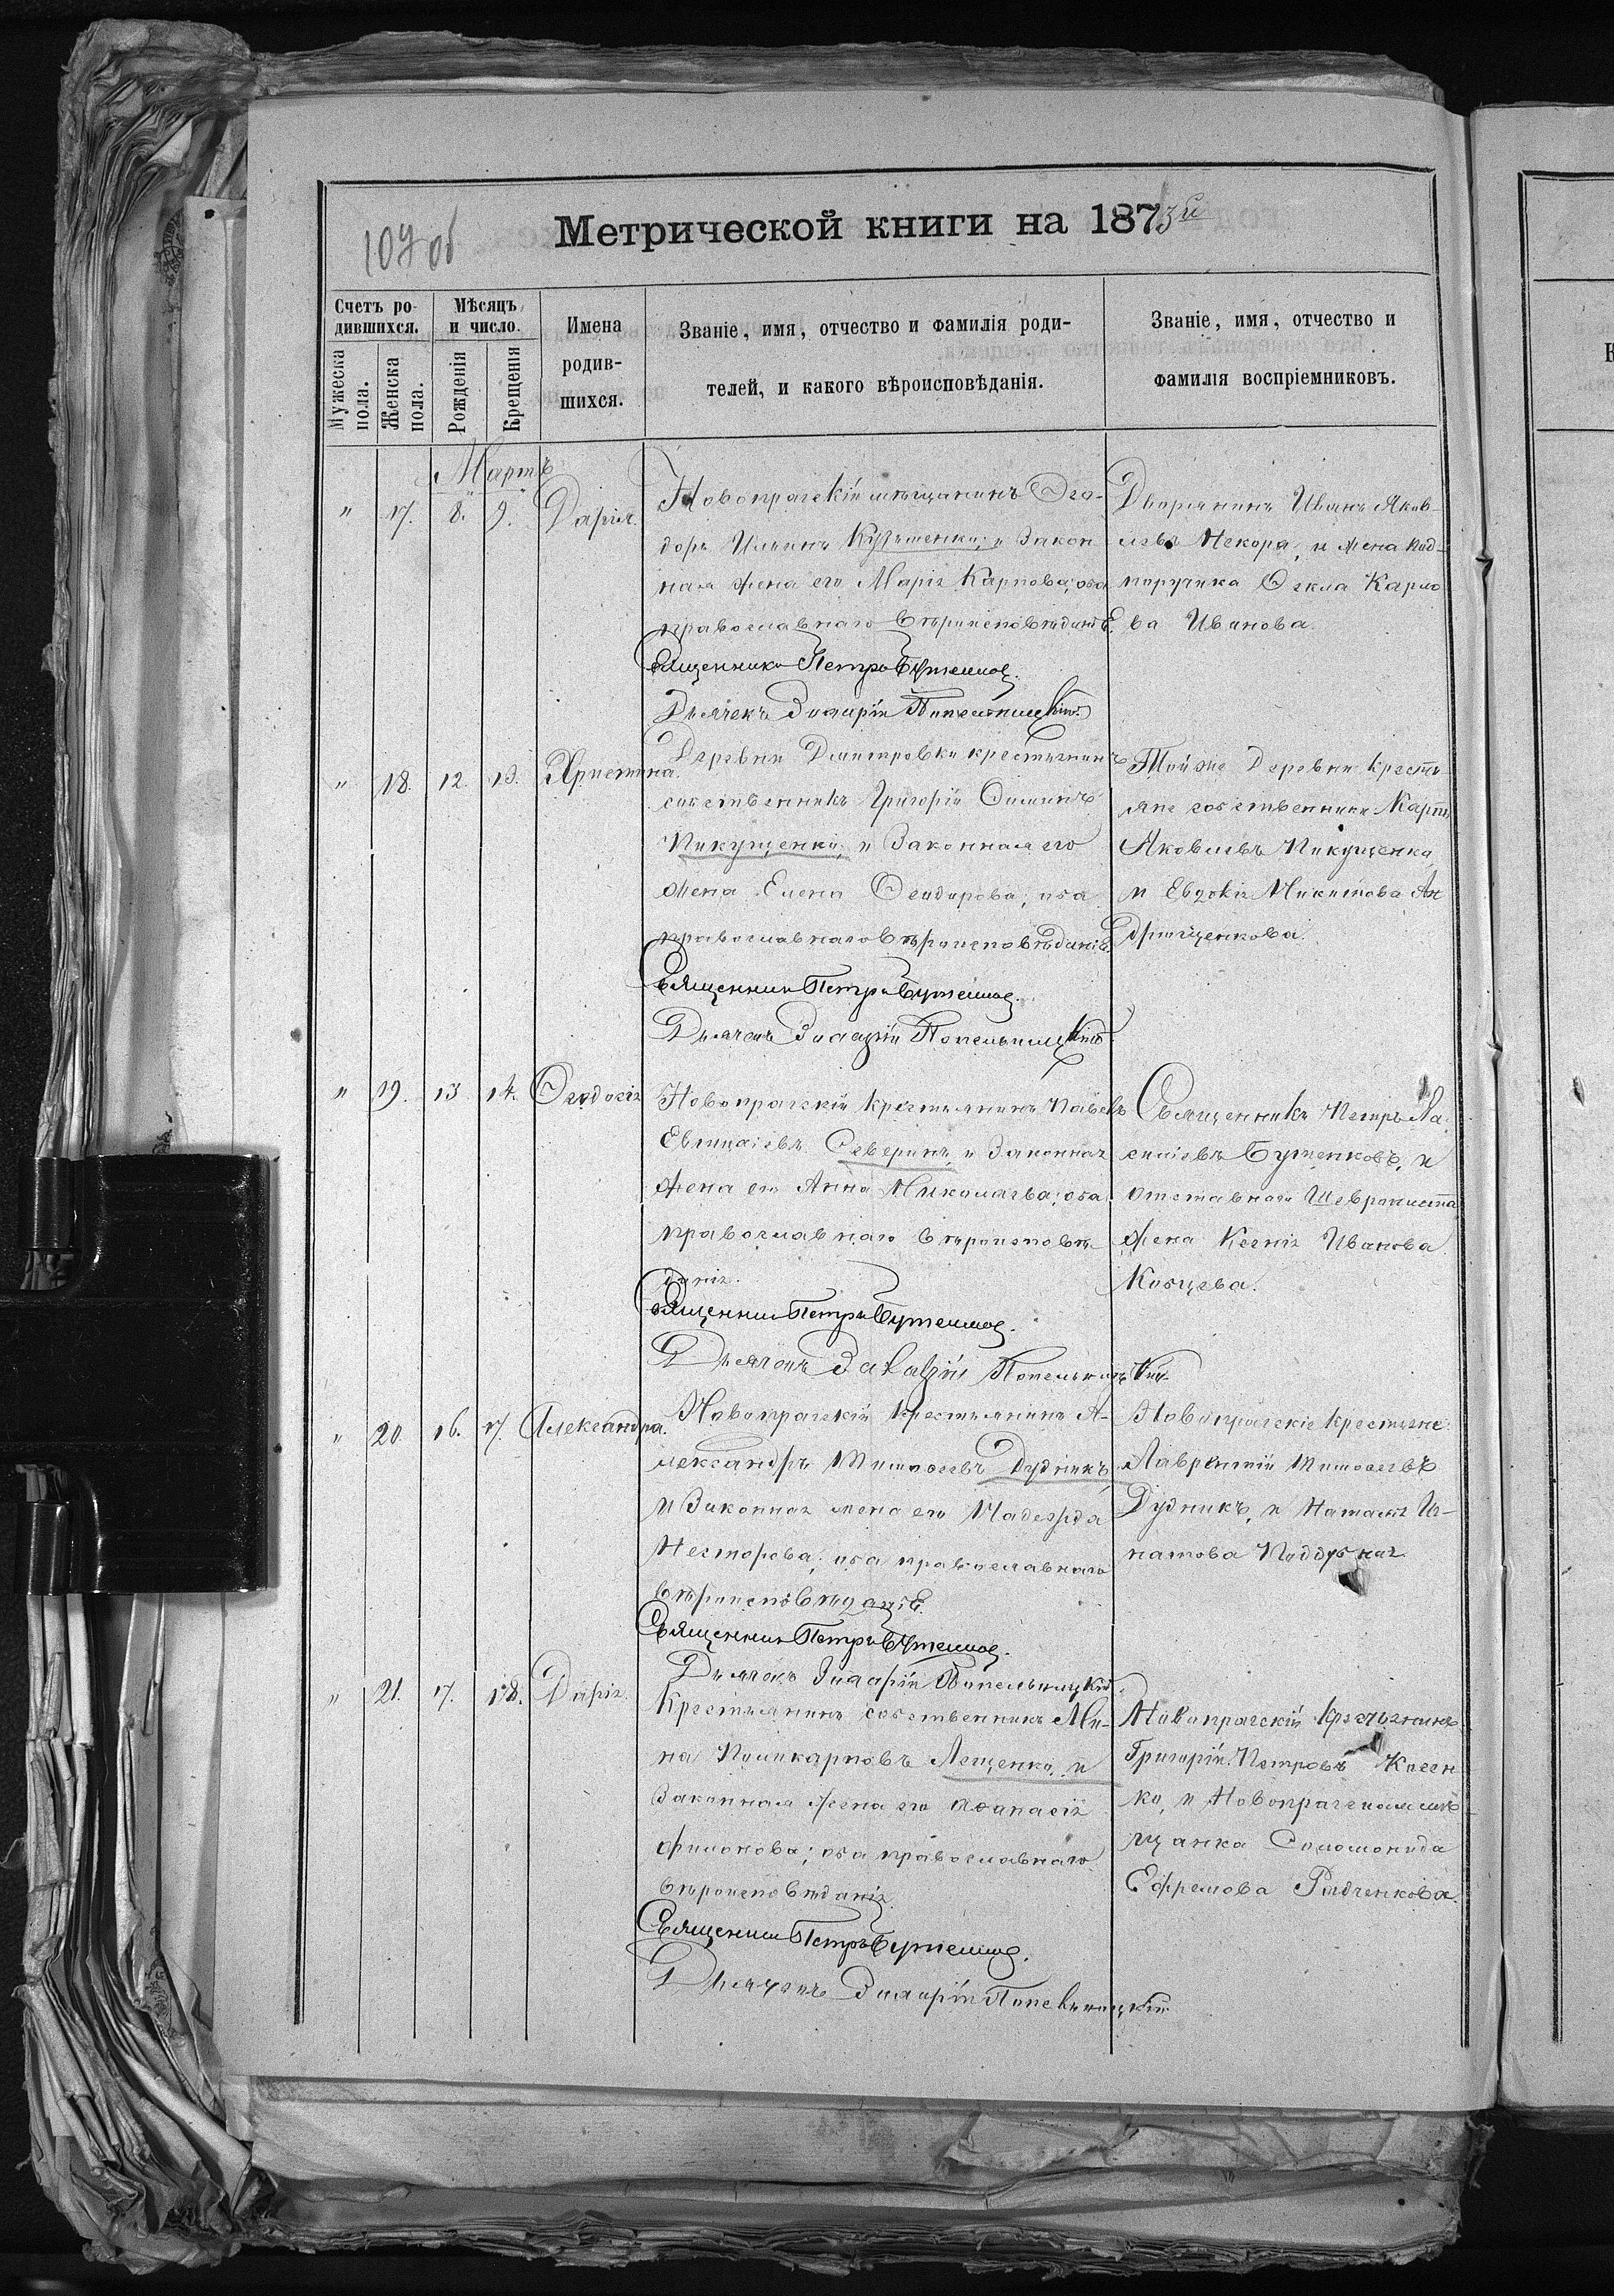 107 об
Метрической книги на 1873й
Счетъ родившихся.
Мѣсяцъ и число.
Имена родившихся.
Званіе, имя, отчество и фамилія роди-
телей, и какого вѣроисповѣданія.
Званіе, имя, отчество и
фамилія воспріемниковъ.
Мужеска пола.
Женска пола.
Рожденія
Крещенія
Мартъ
" 17. 8. 9. Дарія.
Новопрагскій мѣщанинъ Ѳео-
доръ Ильинъ и закон
ная жена его Марія Карпова; оба
православнаго вѣроисповѣданіѣ.
Священникъ Петръ Бутенковъ.
Дьячекъ Попельницкій
Дворянинъ Иванъ Яков-
левъ Некора, и жена под-
поручика Ѳекла Карпо
ва Иванова.
" 18. 12. 13. Христина.
Деревни Дмитровки крестьянинъ
собственникъ Григорій Симинъ
Никущенко, и законная его
жена Елена Ѳеодорова; оба
православнаго вѣроисповѣданіѣ.
Священникъ Петръ Бутенковъ.
Дьячокъ Попельницкій
Той же деревни крестья
яне собственники Карпъ
Яковлевъ Никущенко,
и Евдокія Никитова Ан
дрющенкова.
" 19. 13 14. Ѳеодосія
Новопрагскій крестьянинъ Павелъ
Северинъ, и законная
жена его Анна Николаева; оба
православнаго вѣроисповѣ
данія.
Священникъ Петръ Бутенковъ.
Дьячокъ Попельницкій
Священникъ Петръ Ва
силіевъ Бутенковъ, и
отставнаго
жена Ксенія Иванова
Кобцева.
" 20 16. 17. Александра.
Новопрагскій крестьянинъ А-
лександръ Тимофеевъ Дудникъ,
и законная жена его Надежда
Несторова; оба православнаго
вѣроисповѣданіѣ.
Священникъ Петръ Бутенковъ.
Дьячокъ Попельницкій
Новопрагскіе крестьяне
Лаврентій Тимофеевъ
Дудникъ, и Наталія Иг-
натова Поддубная
" 21. 17. 18. Дарія.
Крестьянинъ собственникъ Ми-
на Поликарповъ Лещенко, и
законная жена его Афанасія
Филонова; оба православнаго
вѣроисповѣданія.
Священникъ Петръ Бутенковъ.
Дьячокъ Попельницкій
Новопрагскій крестьянинъ
Григорій Петровъ Косен
ко, и Новопрагская мѣ
щанка Соломонида
Ефремова Радченкова.